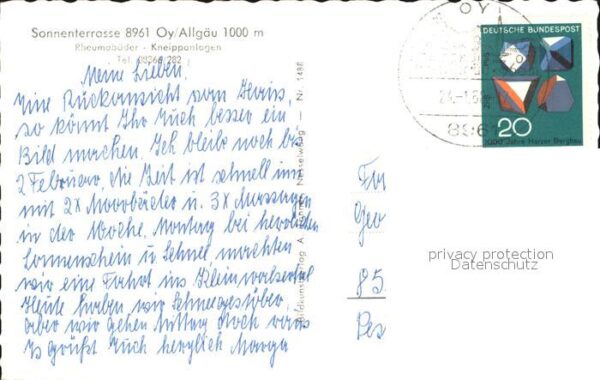 Sonnenterrasse 8961 Oy/Allgäu 1000 m
Rheumabäder - Kneippanlagen
Tel. 08366/282
Meine Lieben,
Eine Rückansicht vom Haus,
so könnt Ihr Euch besser ein
Bild machen. Ich bleibe noch bis
2 Februar, die Zeit ist schnell um
mit 2x Moorbäder u. 3x Massagen
in der Woche. Montag bei herrlichem
Sonnenschein u. Schnee machten
wir eine Fahrt ins Kleinwalsertal
Heute haben wir Schneegestöber,
aber wir gehen Mittag doch raus
Es grüßt Euch herzlich Marga
Nesselwang - Nr. 1488
OY
24.-1.69
8961
DEUTSCHE BUNDESPOST
20
1000 Jahre Harzer Bergbau
Geo
85
privacy protection
Datenschutz